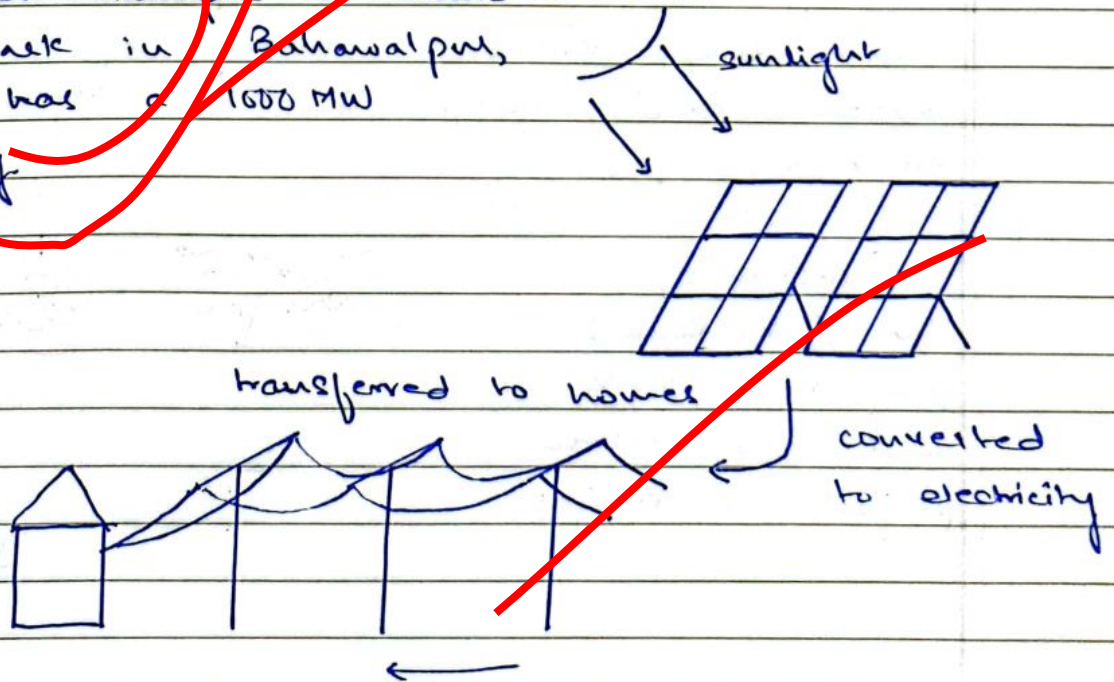 in Bahawalpur,
has a 1000 MW
sunlight
transferred to homes
converted
to electricity